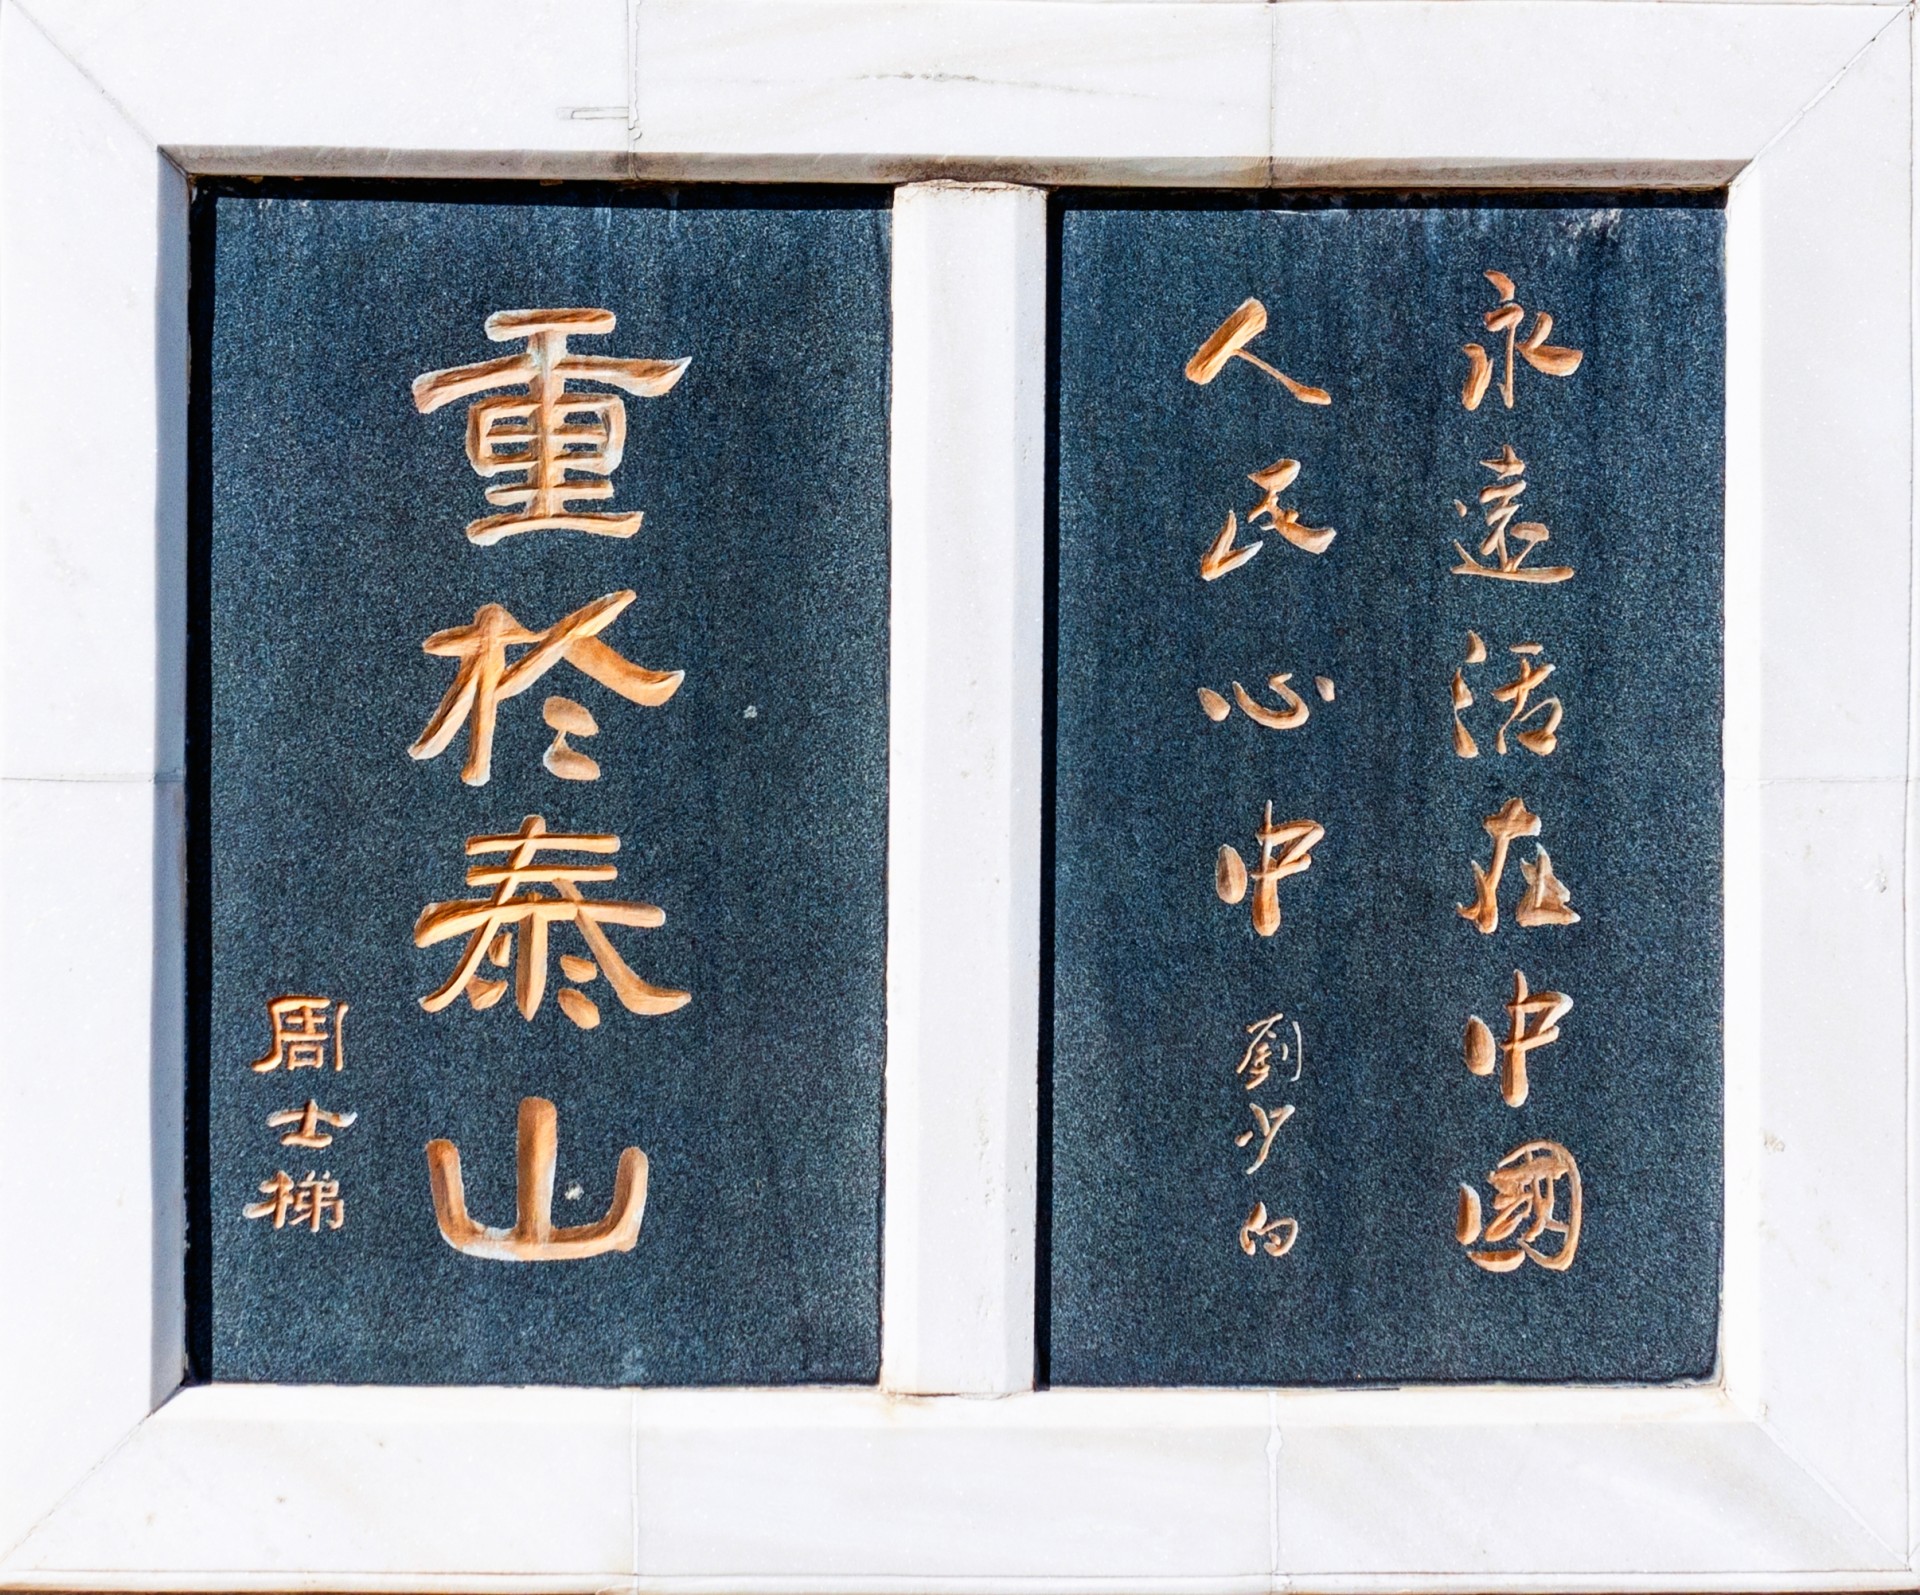 永遠活在中國
人民心中
劉少白
重於泰山
周士梯